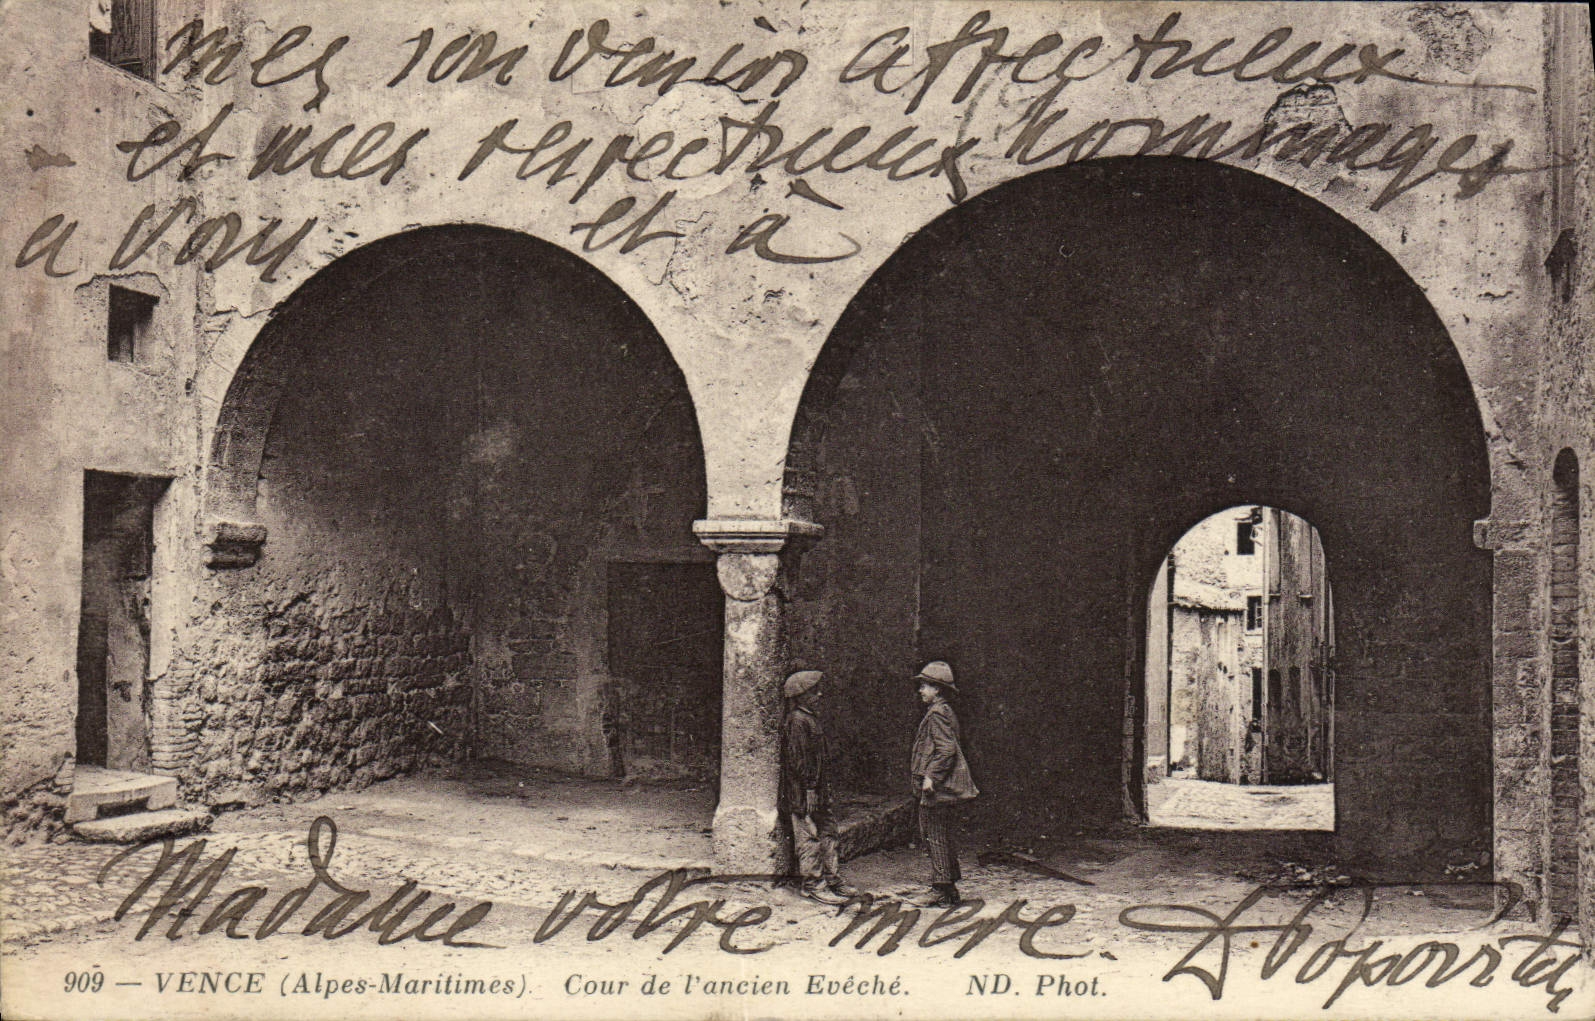 mes souvenirs affectueux
et mes respectueux hommages
a vous et à
Madame votre mere. D Popovitch
909 — VENCE (Alpes-Maritimes). Cour de l'ancien Evêché. ND. Phot.